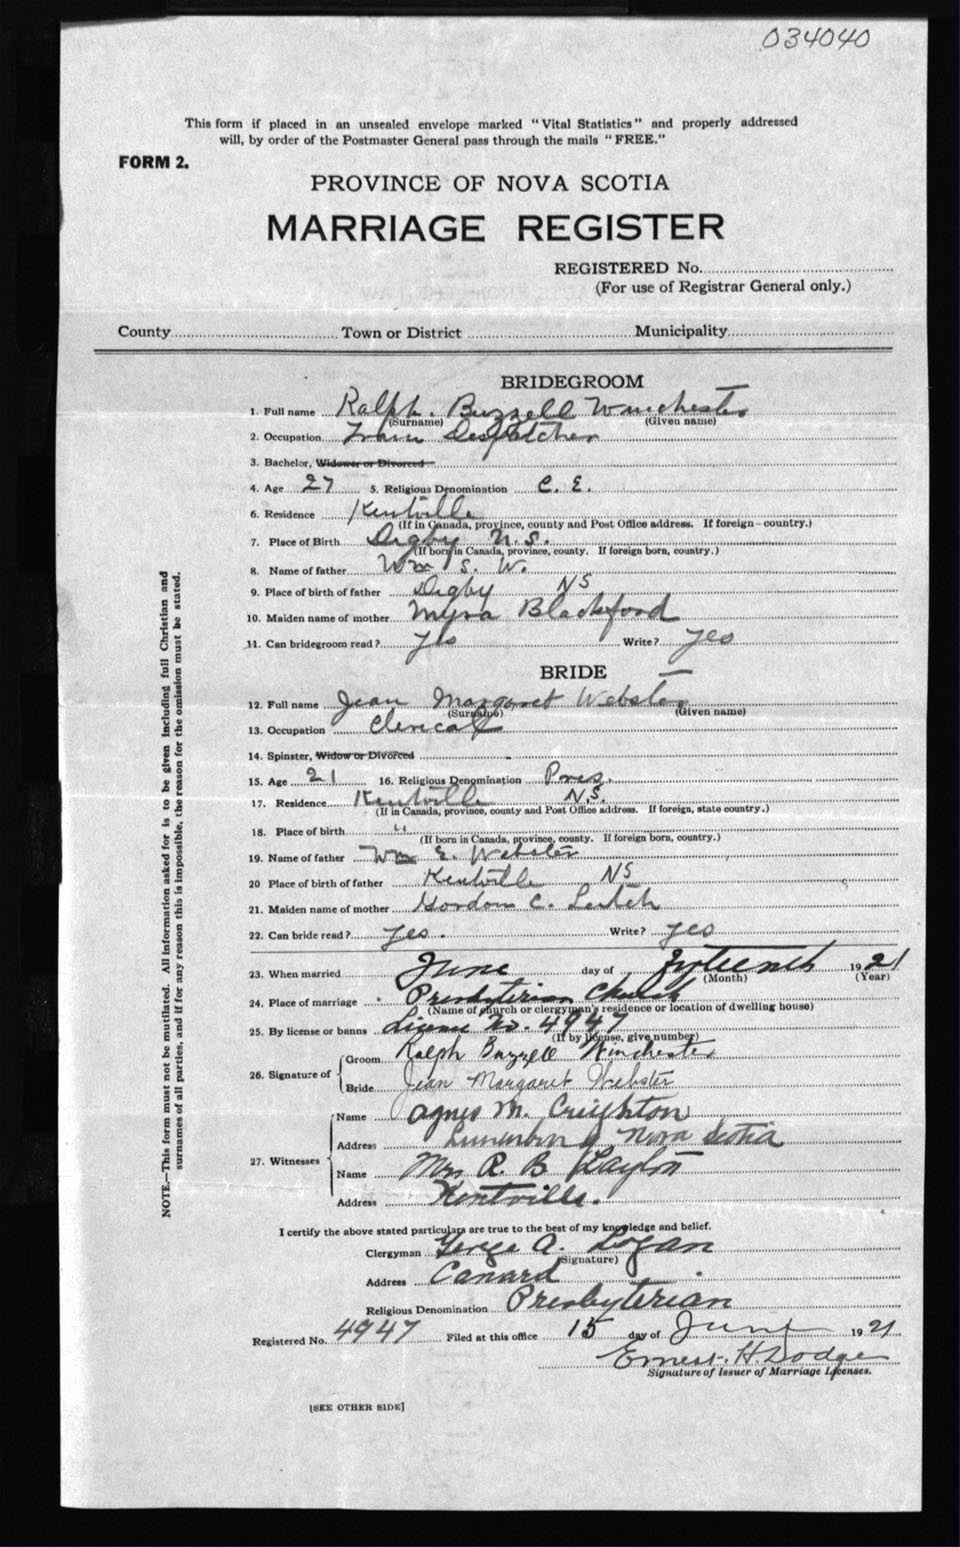 034040
This form if placed in an unsealed envelope marked "Vital Statistics" and properly addressed
will, by order of the Postmaster General pass through the mails "FREE."
FORM 2.
PROVINCE OF NOVA SCOTIA
MARRIAGE REGISTER
REGISTERED No.
(For use of Registrar General only.)
County Town or District Municipality
BRIDEGROOM
1. Full name Ralph. Buzzell Winchester
(Surname) (Given name)
2. Occupation Train Despatcher
3. Bachelor, Widower or Divorced
4. Age 27 5. Religious Denomination C. E.
6. Residence Kentville
(If in Canada, province, county and Post Office address. If foreign—country.)
7. Place of Birth Digby N. S.
(If born in Canada, province, county. If foreign born, country.)
8. Name of father Wm S. W.
9. Place of birth of father Digby NS
10. Maiden name of mother Myra Blackford
11. Can bridegroom read? yes Write? yes
BRIDE
12. Full name Jean Margaret Webster
(Surname) (Given name)
13. Occupation Clerical
14. Spinster, Widow or Divorced
15. Age 21 16. Religious Denomination Pres.
17. Residence Kentville N.S.
(If in Canada, province, county and Post Office address. If foreign, state country.)
18. Place of birth "
(If born in Canada, province, county. If foreign born, country.)
19. Name of father Wm E. Webster
20 Place of birth of father Kentville NS
21. Maiden name of mother Gordon C. Leitch
22. Can bride read? yes. Write? yes
23. When married June day of fifteenth 1921
(Month) (Year)
24. Place of marriage Presbyterian Church
(Name of church or clergyman's residence or location of dwelling house)
25. By license or banns License No. 4947
(If by license, give number)
26. Signature of Groom Ralph Buzzell Winchester
Bride Jean Margaret Webster
27. Witnesses Name Agnes M. Creighton
Address Lunenburg, Nova Scotia
Name Mrs R. B. Layton
Address Kentville.
I certify the above stated particulars are true to the best of my knowledge and belief.
Clergyman George A. Logan
(Signature)
Address Canard
Religious Denomination Presbyterian
Registered No. 4947 Filed at this office 15 day of June 1921
Ernest. H. Dodge
Signature of Issuer of Marriage Licenses.
[SEE OTHER SIDE]
NOTE.—This form must not be mutilated. All information asked for is to be given including full Christian and
surnames of all parties, and if for any reason this is impossible, the reason for the omission must be stated.